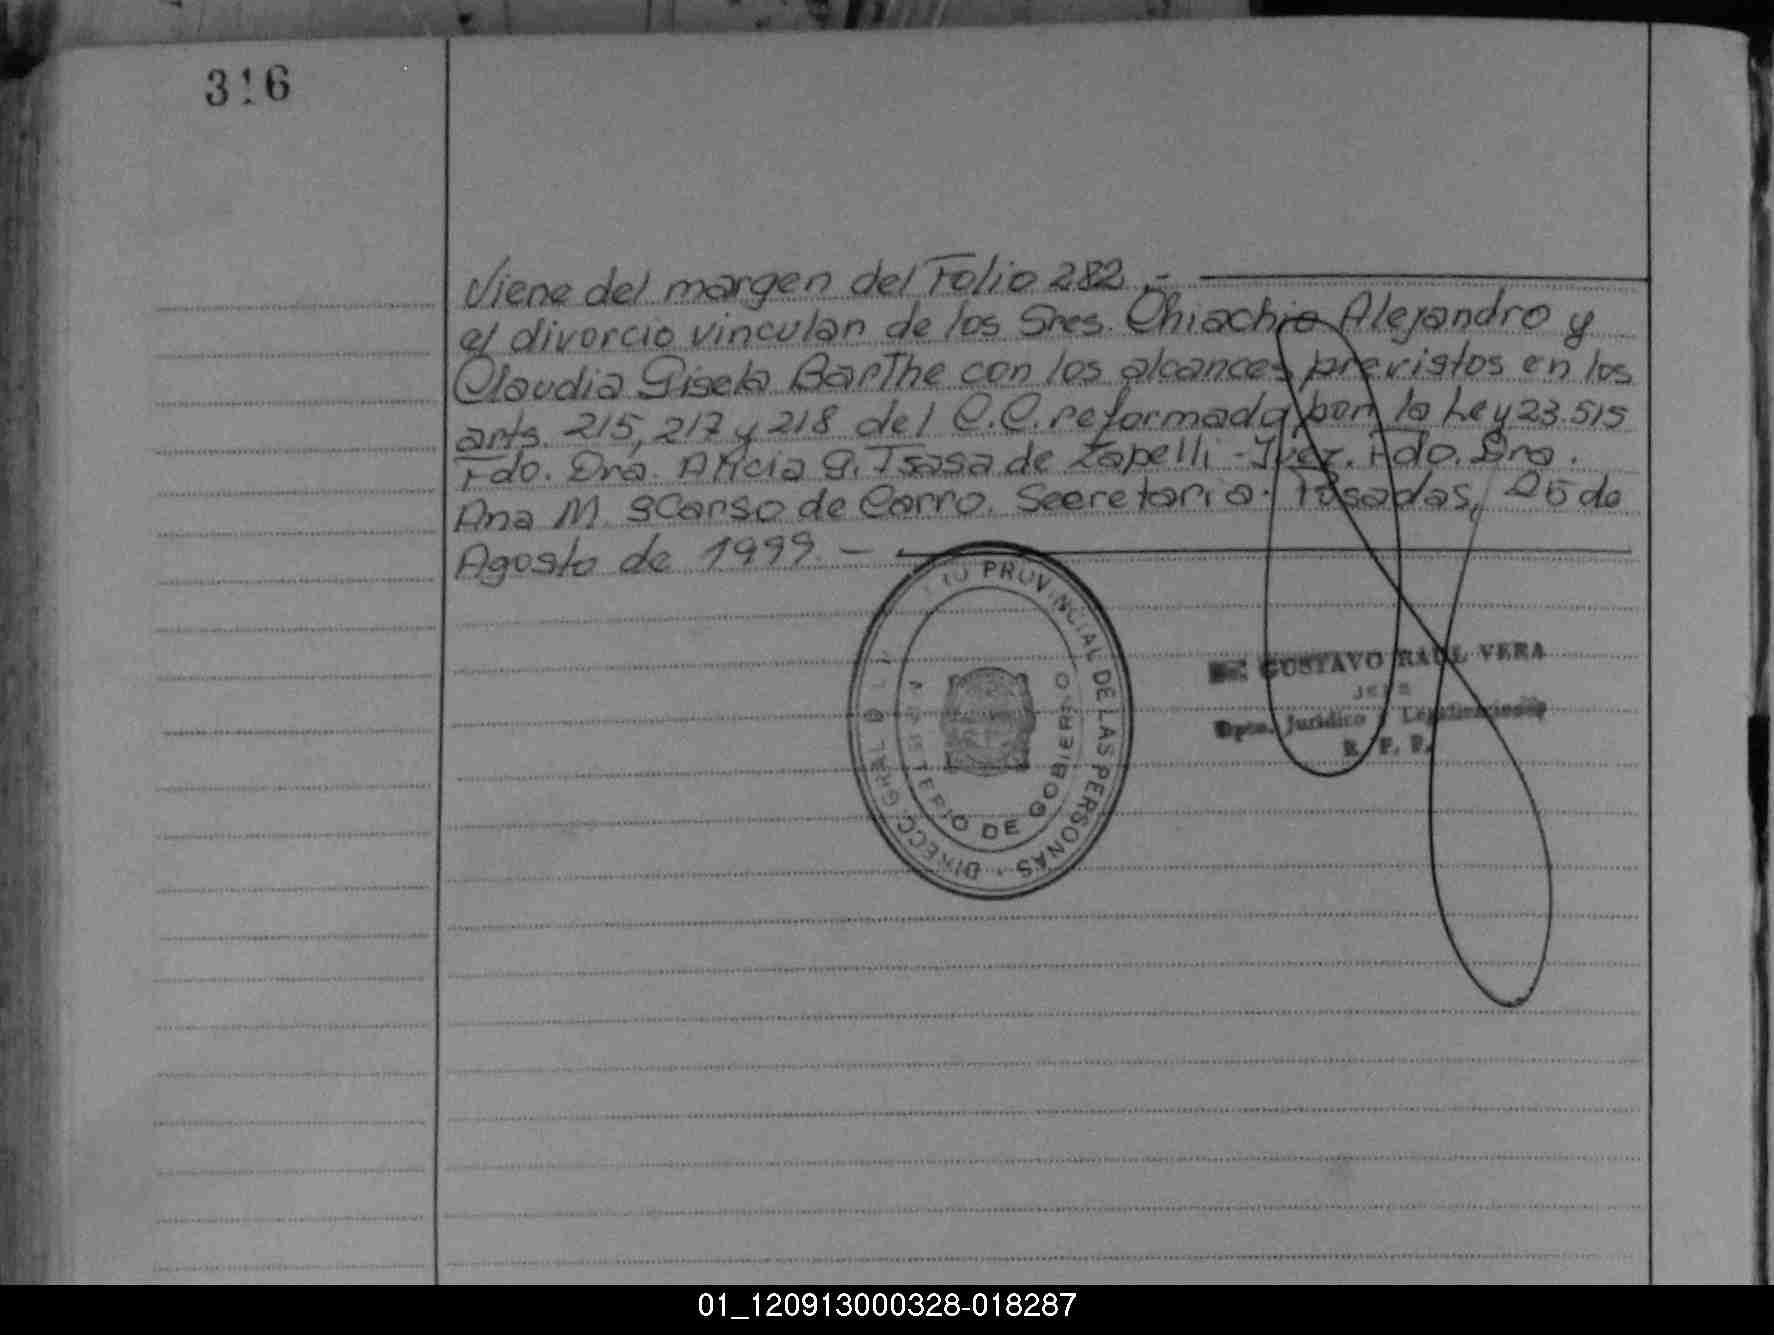 316
Viene del margen del Folio 282.-
el divorcio vincular de los Sres. Chiachio Alejandro y
Claudia Gisela Barthe con los alcances previstos en los
arts. 215, 217 y 218 del C.C. reformado por la Ley 23.515
Fdo. Dra. Alicia G. Isasa de Zapelli - Juez. Fdo. Dra.
Ana M. Scarso de Carro. Secretaria. Posadas, 25 de
Agosto de 1999 -
PROVINCIAL DE LAS PERSONAS - DIRECC GRAL
MINISTERIO DE GOBIERNO
GUSTAVO RAUL VERA
JEFE
Dpto. Jurídico y Legalizaciones
R. P. P.
01_120913000328-018287